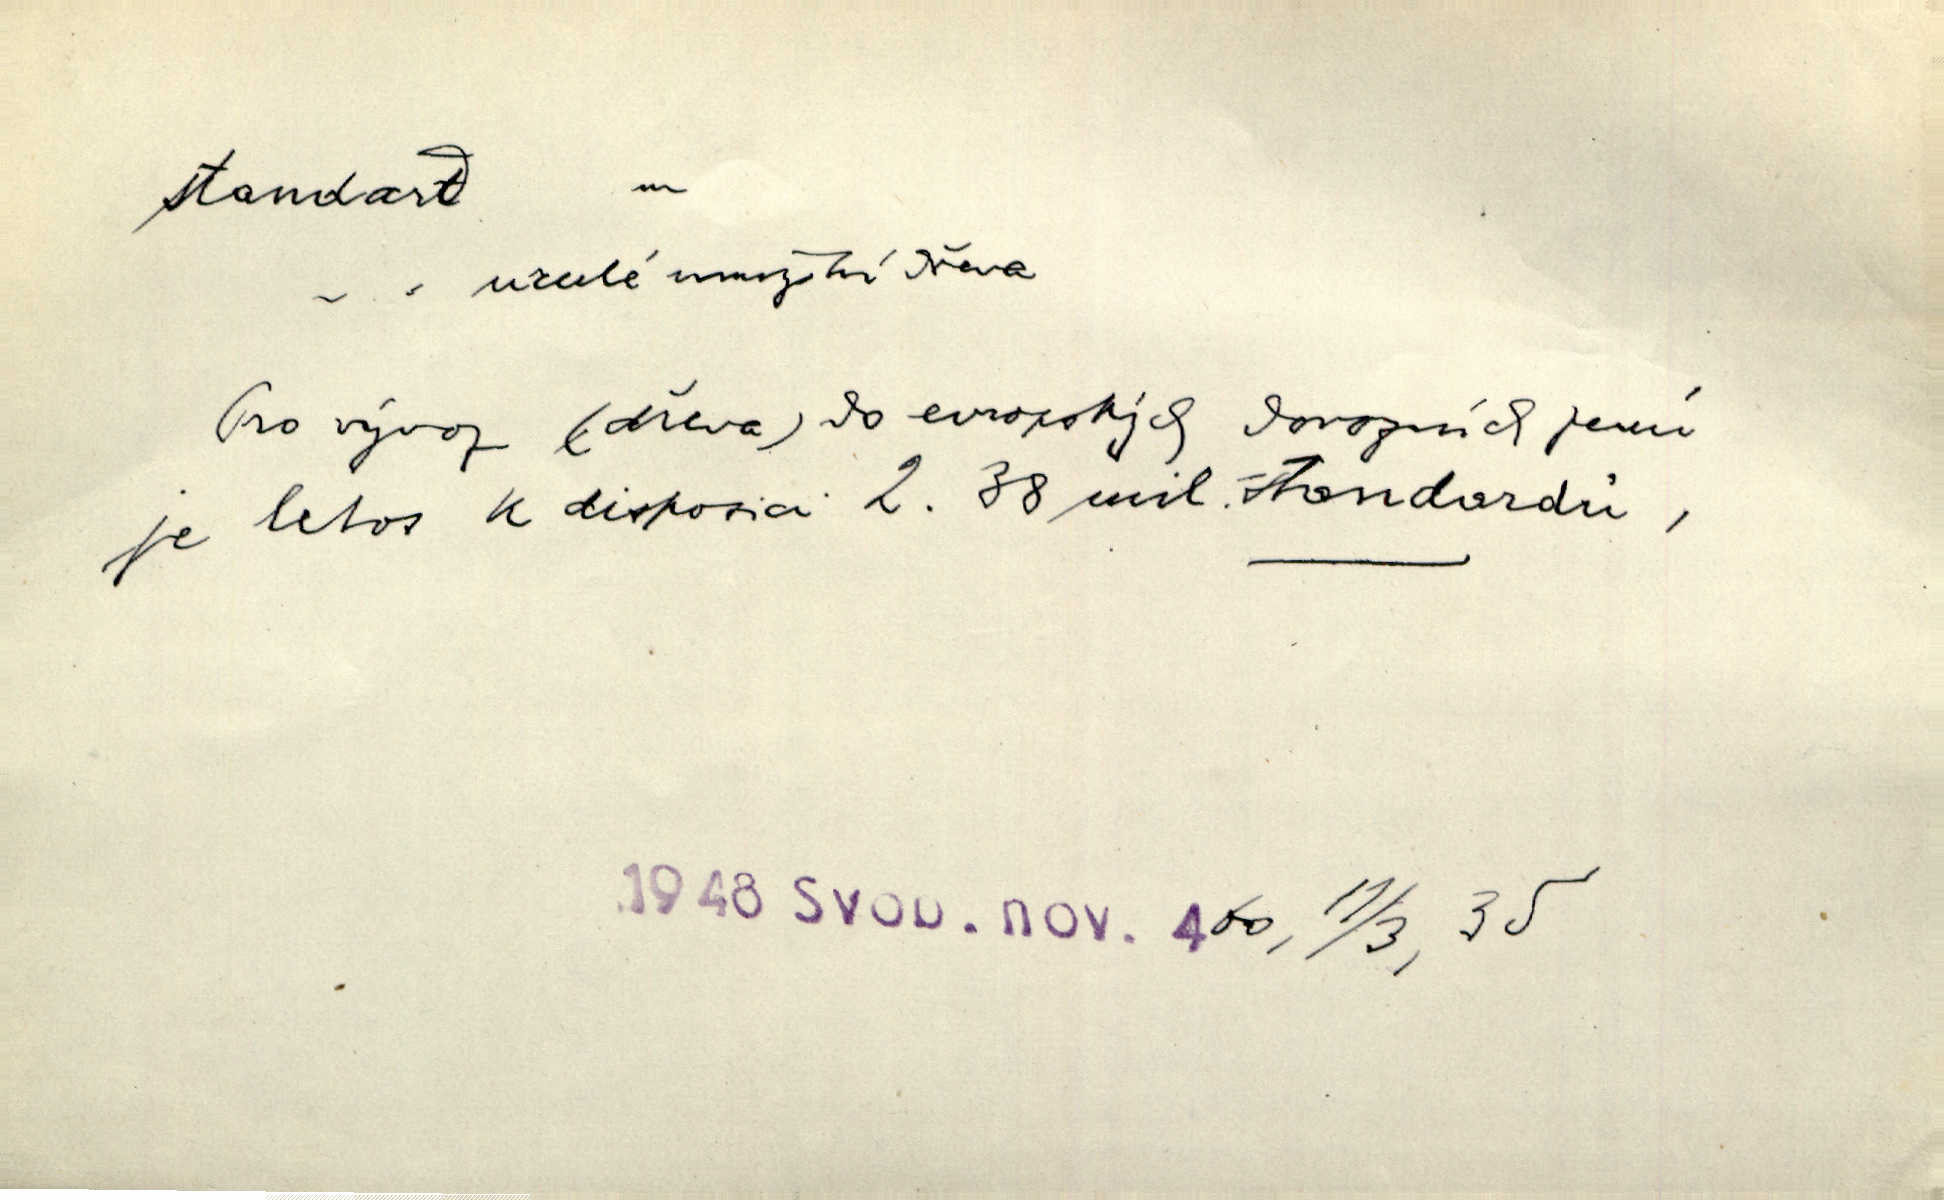 standard m
určité množství dřeva
Pro vývoz (dřeva) do evropských dovozních zemí
je letos k disposici 2.38 mil. standardů,
1948 Svob. nov. 4 60, 11/3, 35